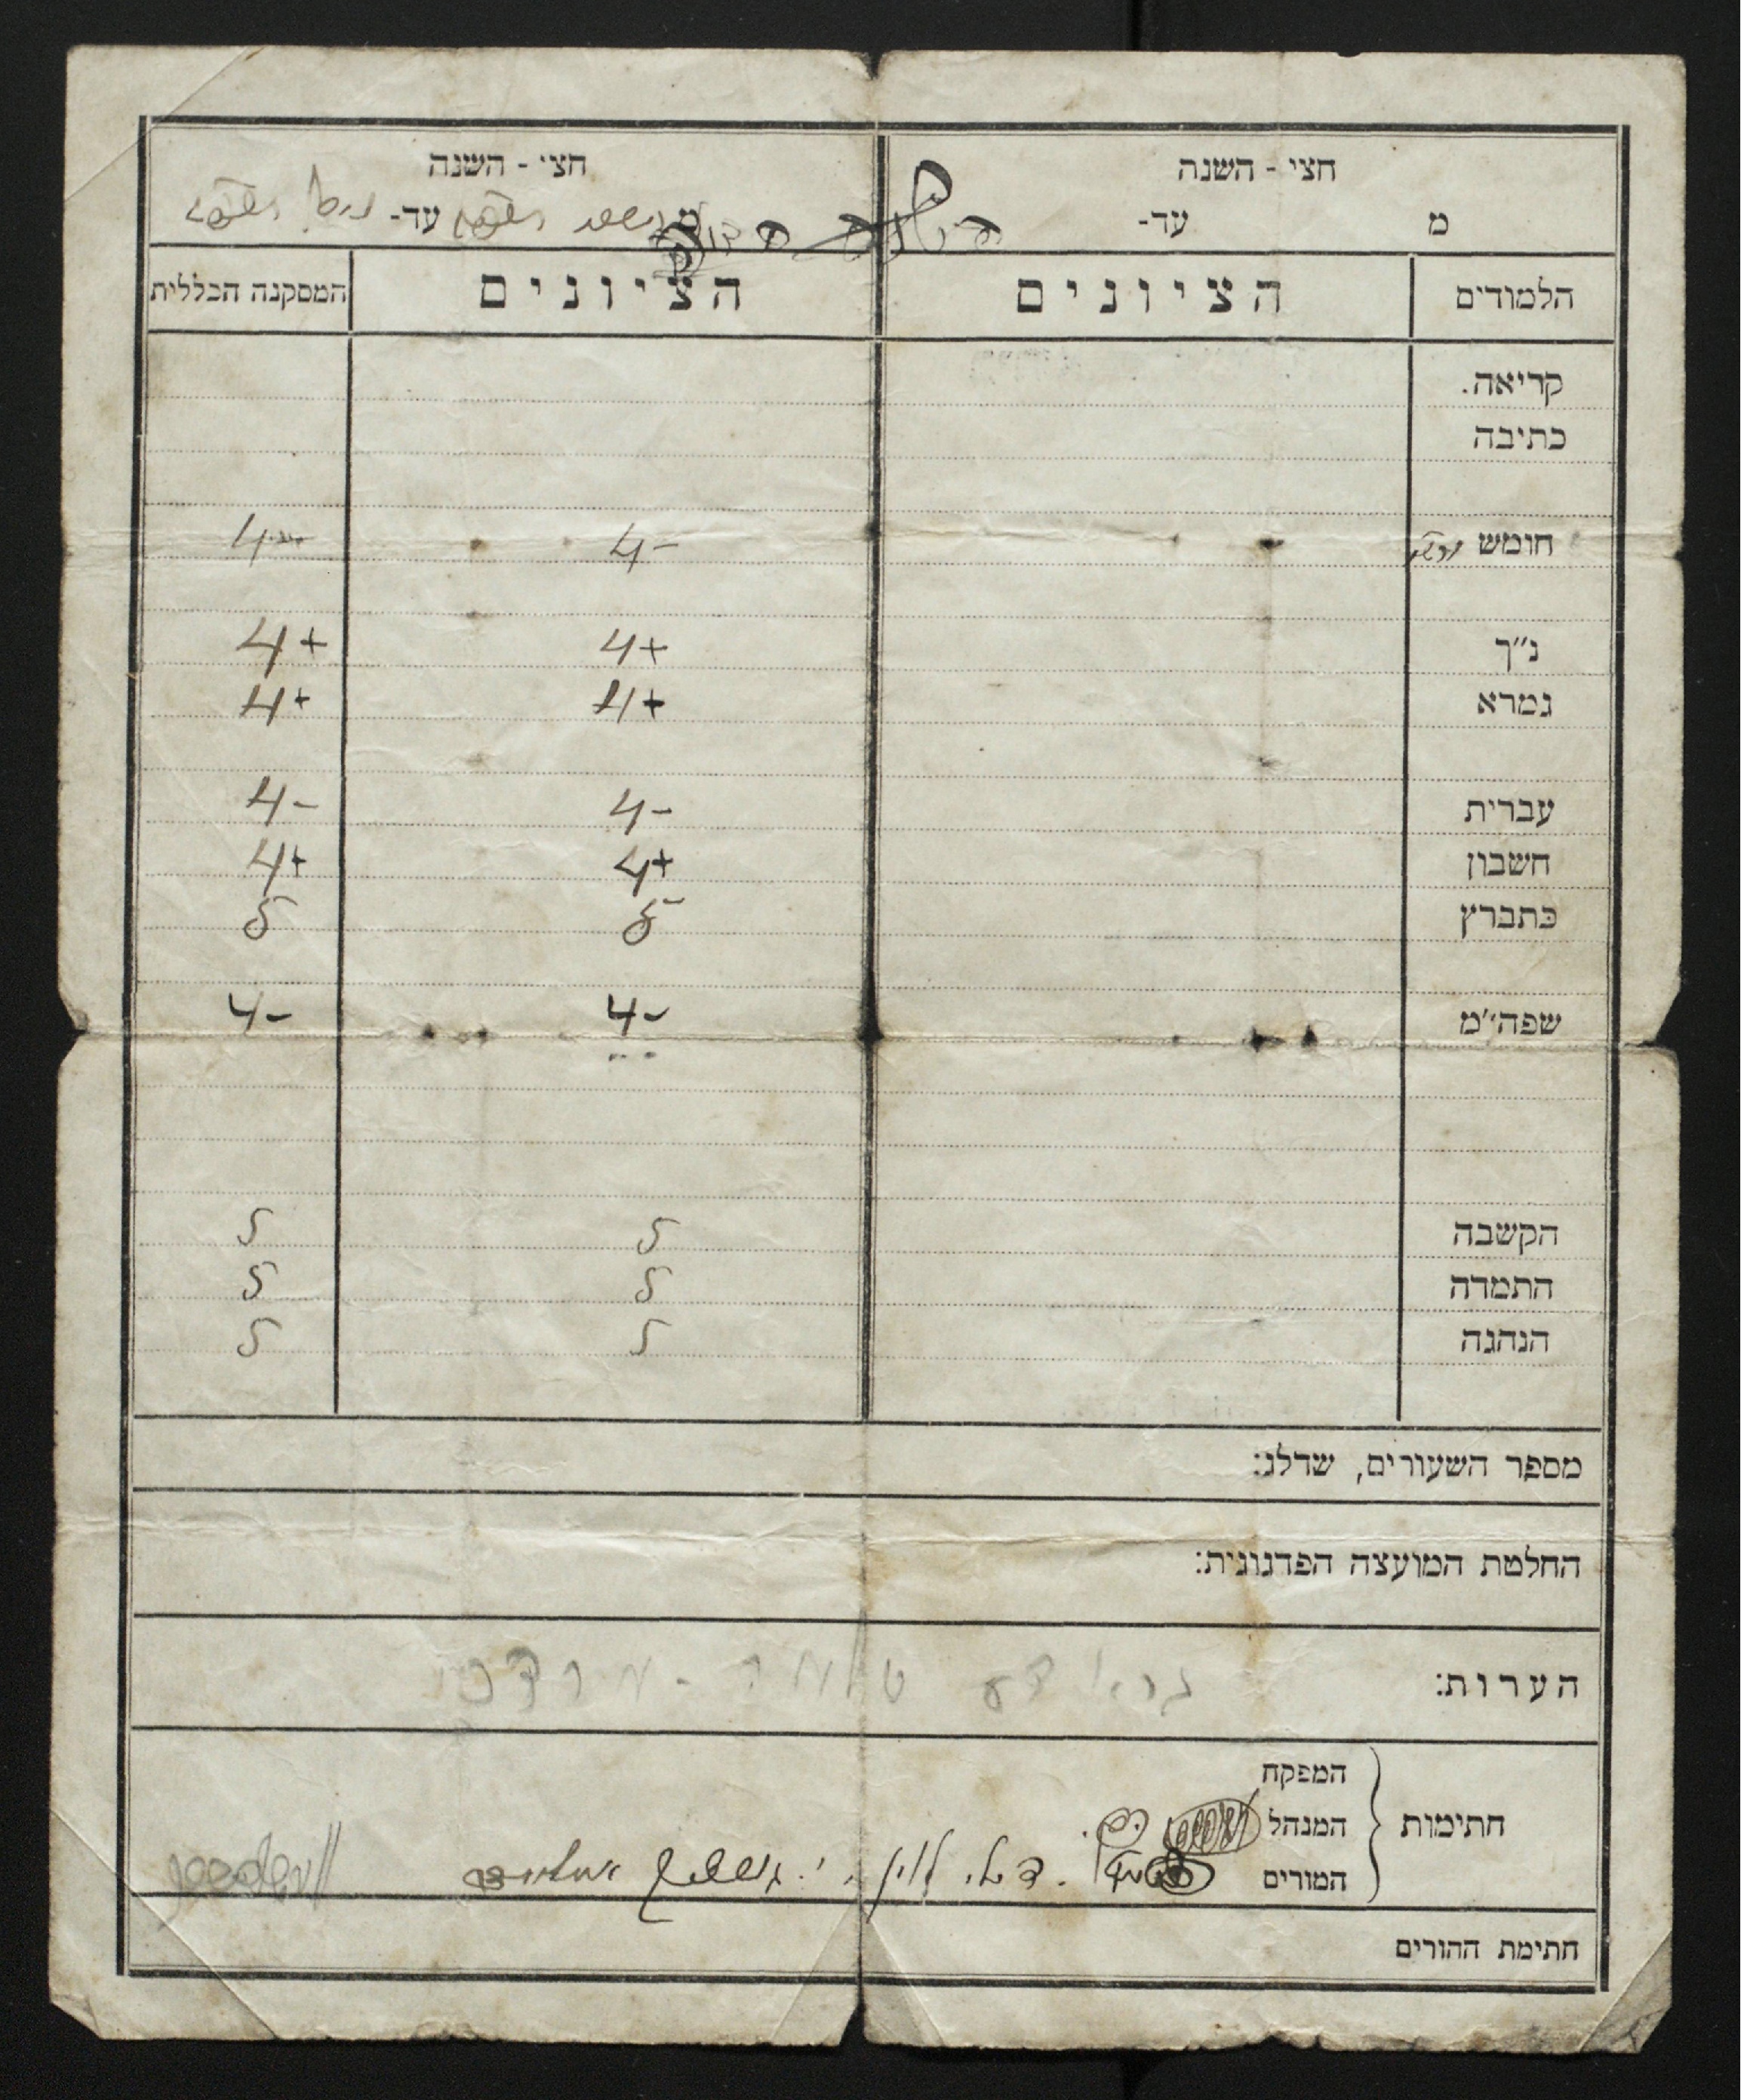 חצי - השנה
מ עד-
חצי - השנה
מ עד-
הלמודים הציונים הציונים המסקנה הכללית
קריאה.
כתיבה
חומש 4- 4-
נ"ך 4+ 4+
גמרא 4+ 4+
עברית 4- 4-
חשבון 4+ 4+
כתברץ 5- 5
שפה"מ 4- 4-
הקשבה 5 5
התמדה 5 5
הנהגה 5 5
מספר השעורים, שדלג:
החלטת המועצה הפדגוגית:
הערות:
חתימות
המפקח
המנהל
המורים
חתימת ההורים